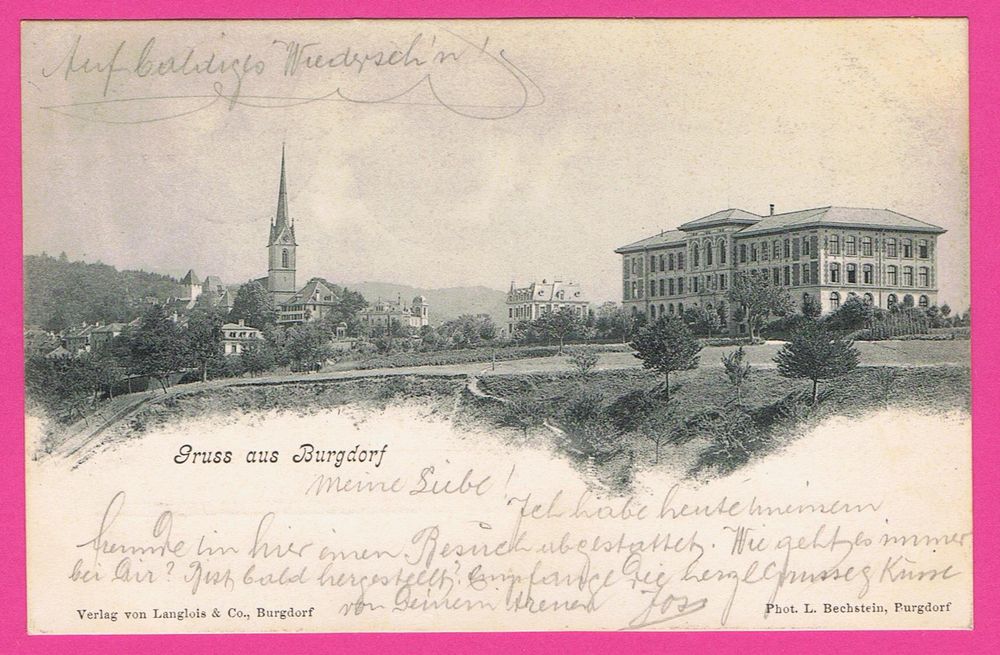 Auf baldiges Wiederseh'n!
Gruss aus Burgdorf
Meine Liebe!
Ich habe heute meinem
Freunde in hier einen Besuch abgestattet. Wie geht es immer
bei Dir? Bist bald hergestellt? Empfange Die herzl Grüsse & Küsse
von Deinem treuen Joss
Verlag von Langlois & Co., Burgdorf
Phot. L. Bechstein, Burgdorf